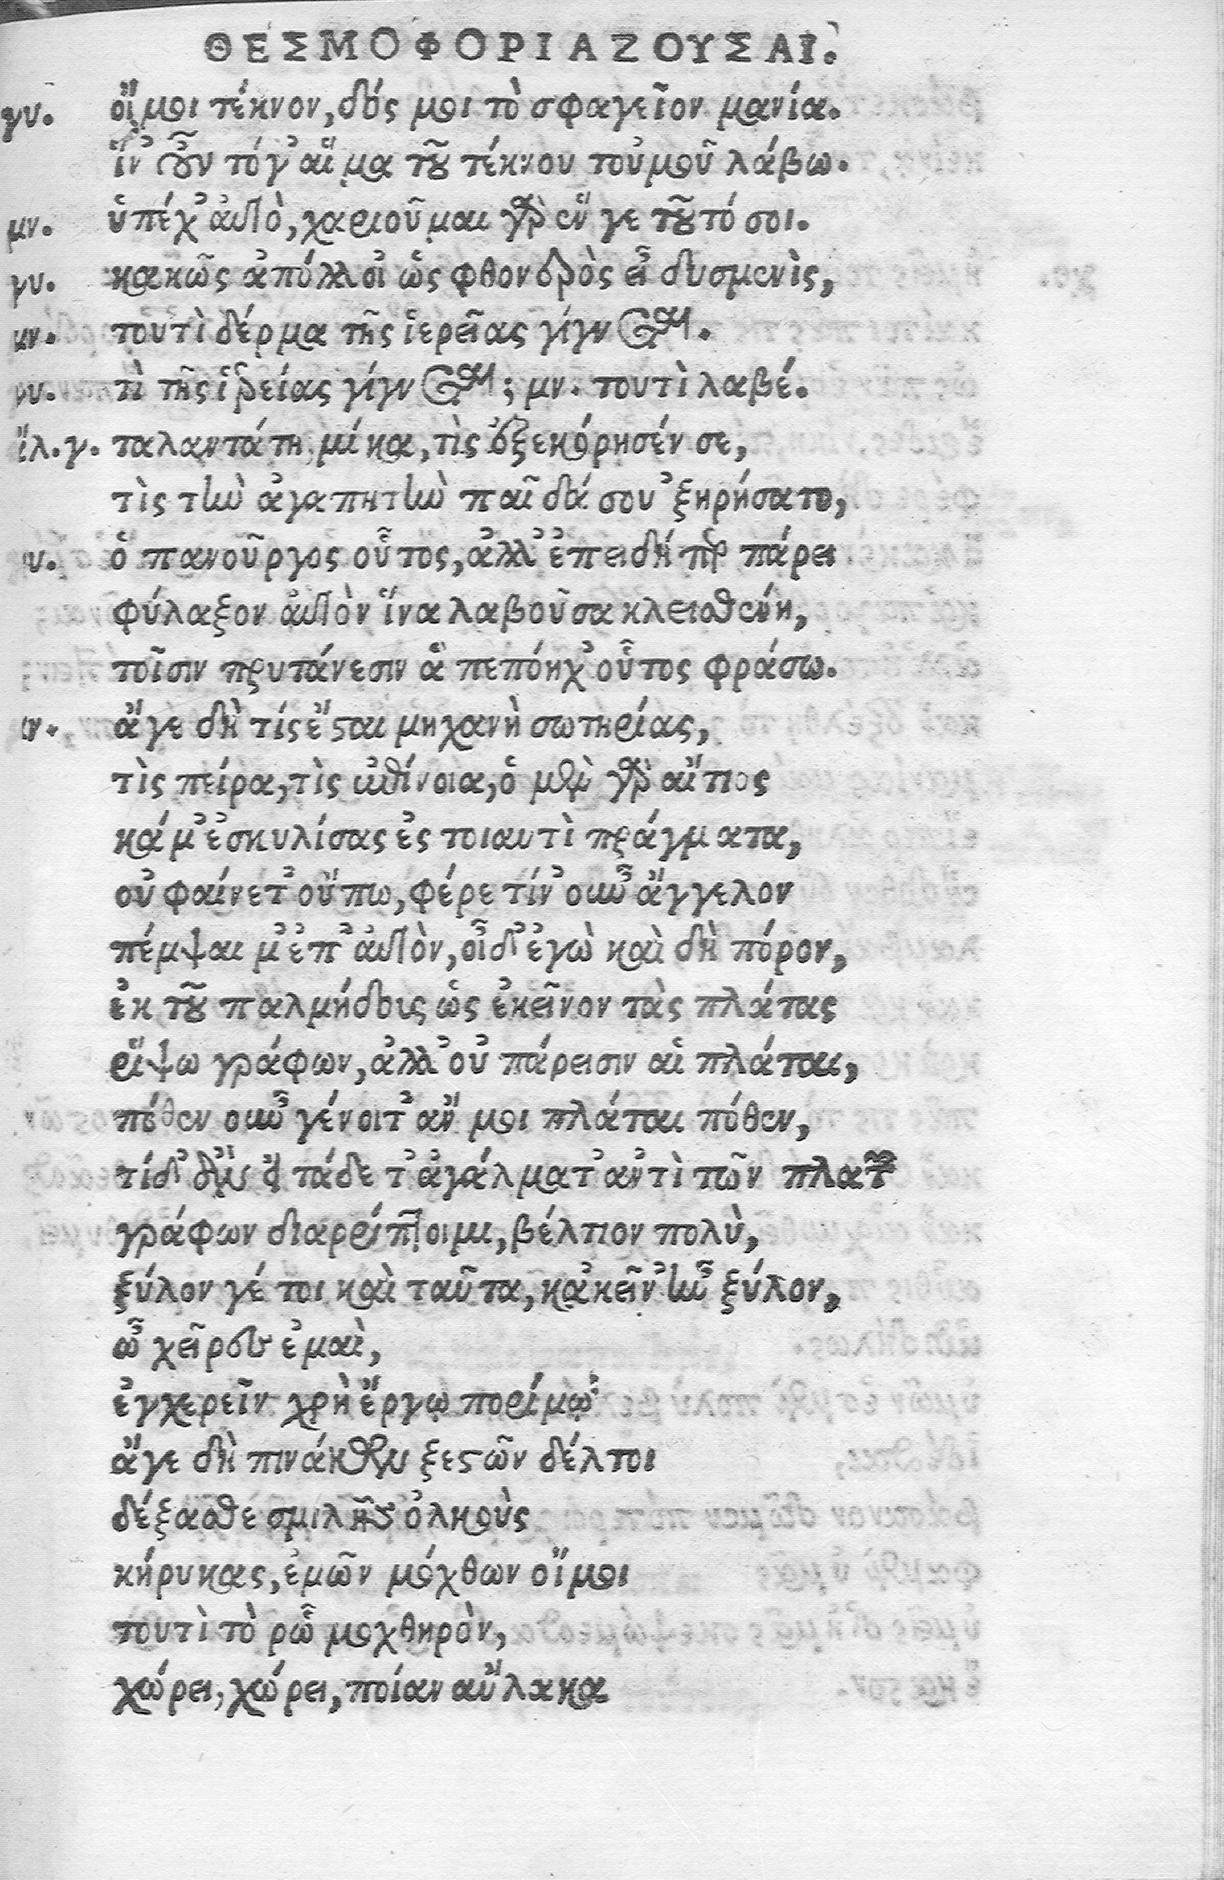 ΘΕΣΜΟΦΟΡΙΑΖΟΥΣΑΙ.
γυ. οἴμοι τέκνον, δός μοι τὸ σφαγεῖον μανία.
ἵν' οὖν τό γ' αἷμα τοῦ τέκνου τοὐμοῦ λάβω.
μν. ὑπέχ' αὐτὸ, χαριοῦμαι γὰρ ἕν γε τοῦτό σοι.
γυ. κακῶς ἀπόλλοι' ὡς φθονερὸς εἶ δυσμενὴς,
μν. τουτὶ δέρμα τῆς ἱερείας γίγνεται.
γυ. τὶ τῆς ἱερείας γίγνεται; μν. τουτὶ λαβέ.
ἄλ.γ. ταλαντάτη μίκα, τὶς ἐξεκόρησέν σε,
τὶς τὴν ἀγαπητὴν παῖδά σου 'ξηρήσατο,
υ. ὁ πανοῦργος οὗτος, ἀλλ' ἐπειδήπερ πάρει
φύλαξον αὐτὸν ἵνα λαβοῦσα κλεισθένη,
τοῖσιν πρυτάνεσιν ἃ πεπόηχ' οὗτος φράσω.
μν. ἄγε δὴ τίς ἔσται μηχανὴ σωτηρίας,
τὶς πείρα, τὶς ἐπίνοια, ὁ μὲν γὰρ αἴτιος
κἄμ' ἐσκυλίσας ἐς τοιαυτὶ πράγματα,
οὐ φαίνετ' οὔπω, φέρε τίν' οὖν ἄγγελον
πέμψαιμ' ἐπ' αὐτὸν, οἶδ' ἐγὼ καὶ δὴ πόρον,
ἐκ τοῦ παλμήδους ὡς ἐκεῖνον τὰς πλάτας
ῥίψω γράφων, ἀλλ' οὐ πάρεισιν αἱ πλάται,
πόθεν οὖν γένοιτ' ἄν μοι πλάται πόθεν,
τίδ' ἂν εἰ τάδε τ' ἀγάλματ' ἀντὶ τῶν πλατῶν
γράφων διαρίπτοιμι, βέλτιον πολὺ,
ξύλον γέ τοι καὶ ταῦτα, κἀκεῖν' ἦν ξύλον,
ὦ χεῖρες ἐμαὶ,
ἐγχερεῖν χρὴ ἔργῳ πορίμῳ
ἄγε δὴ πινάκων ξεστῶν δέλτοι
δέξασθε σμίλης ὁλκοὺς
κήρυκας, ἐμῶν μόχθων οἴμοι
τουτὶ τὸ ρῶ μοχθηρὸν,
χώρει, χώρει, ποίαν αὔλακα